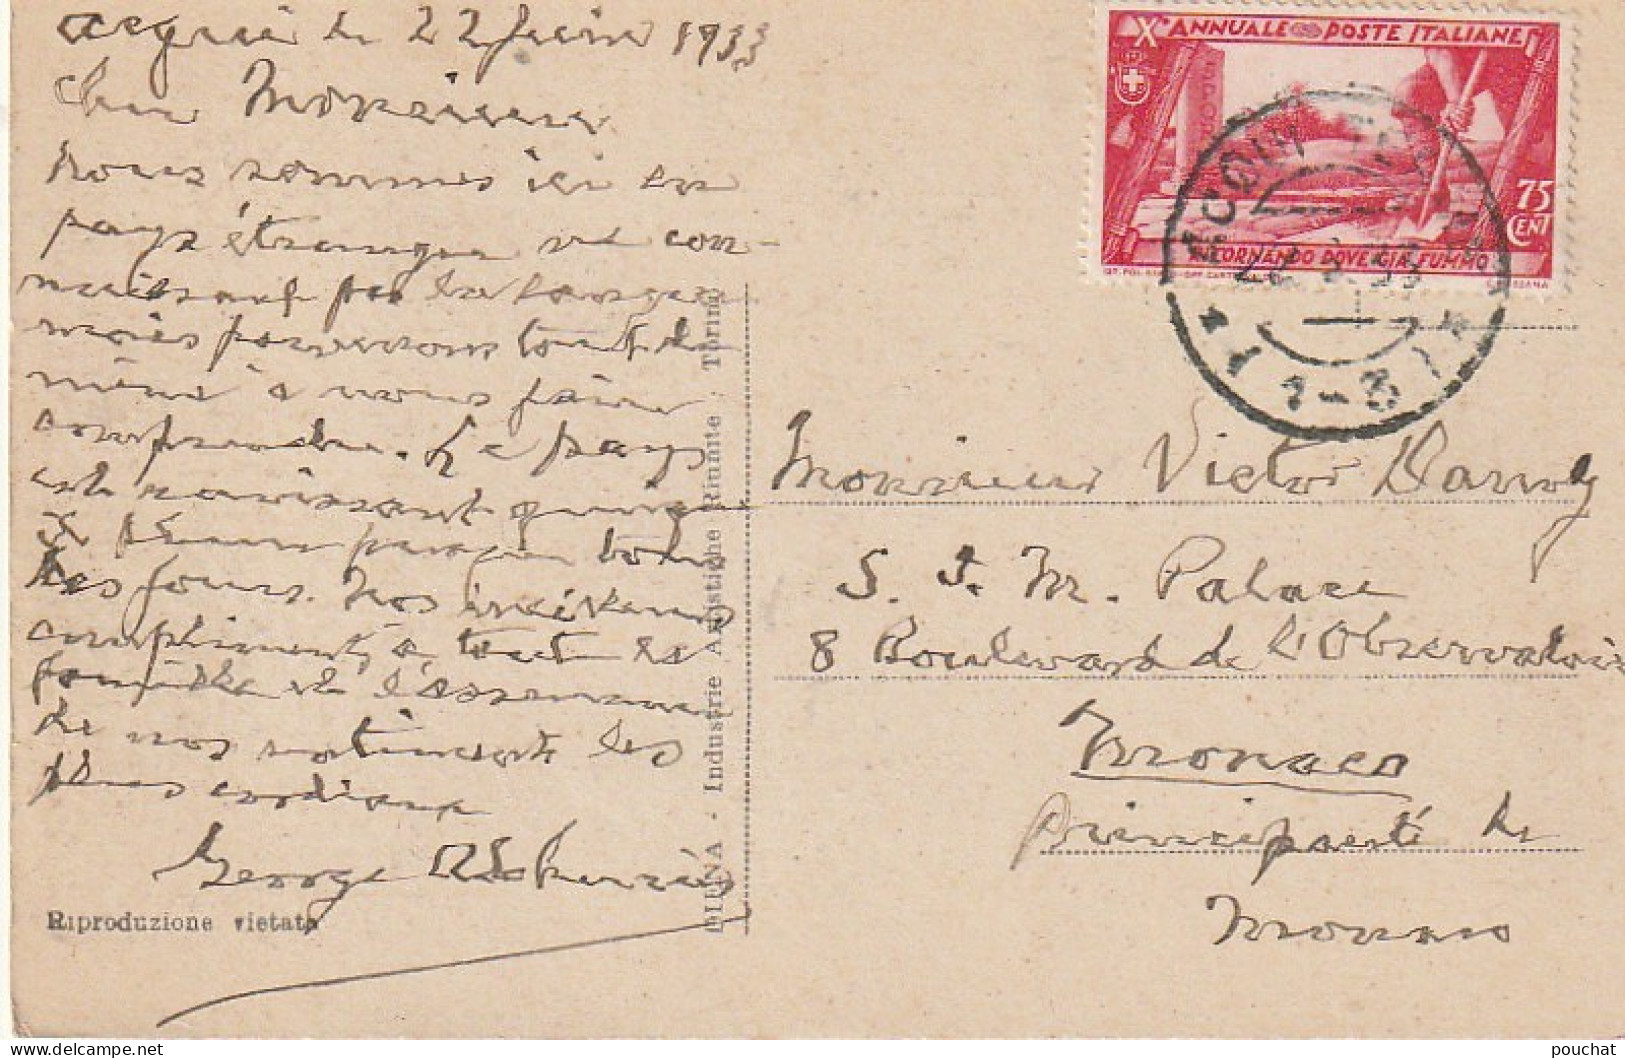 le 22 juin 1933
Cher Monsieur
Nous sommes ici en
pays étranger ne con-
naissant pas la langue
mais parvenons tout de
même à nous faire
comprendre. Le pays
est ravissant quoique
il pleuve presque tous
les jours. Nos meilleurs
compliments à toute la
famille et l'assurance
de nos sentiments les
plus cordiaux
George
Riproduzione vietata
DIENA - Industrie Artistiche Riunite - Torino
X° ANNUALE POSTE ITALIANE
75
CENT
RICORNANDO DOVE GIA FUMMO
22 6 33
Monsieur Victor
S. I. M. Palace
8 Boulevard de l'Observatoire
Monaco
Principauté de
Monaco
pouchat